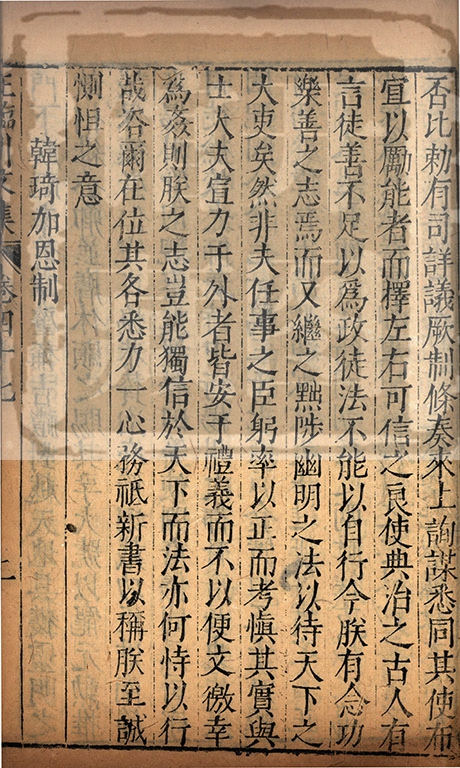 否比勅有司詳議厥制條奏來上詢謀悉同其使布
宣以勵能者而擇左右可信之良使典治之古人有
言徒善不足以爲政徒法不能以自行今朕有念功
樂善之志焉而又繼之黜陟幽明之法以待天下之
大吏矣然非夫任事之臣躬率以正而考慎其實與
士大夫宣力于外者皆安于禮義而不以便文徼幸
爲姦則朕之志豈能獨信於天下而法亦何恃以行
哉咨爾在位其各悉力一心務祗新書以稱朕至誠
惻怛之意
韓琦加恩制
王臨川文集 卷四十七